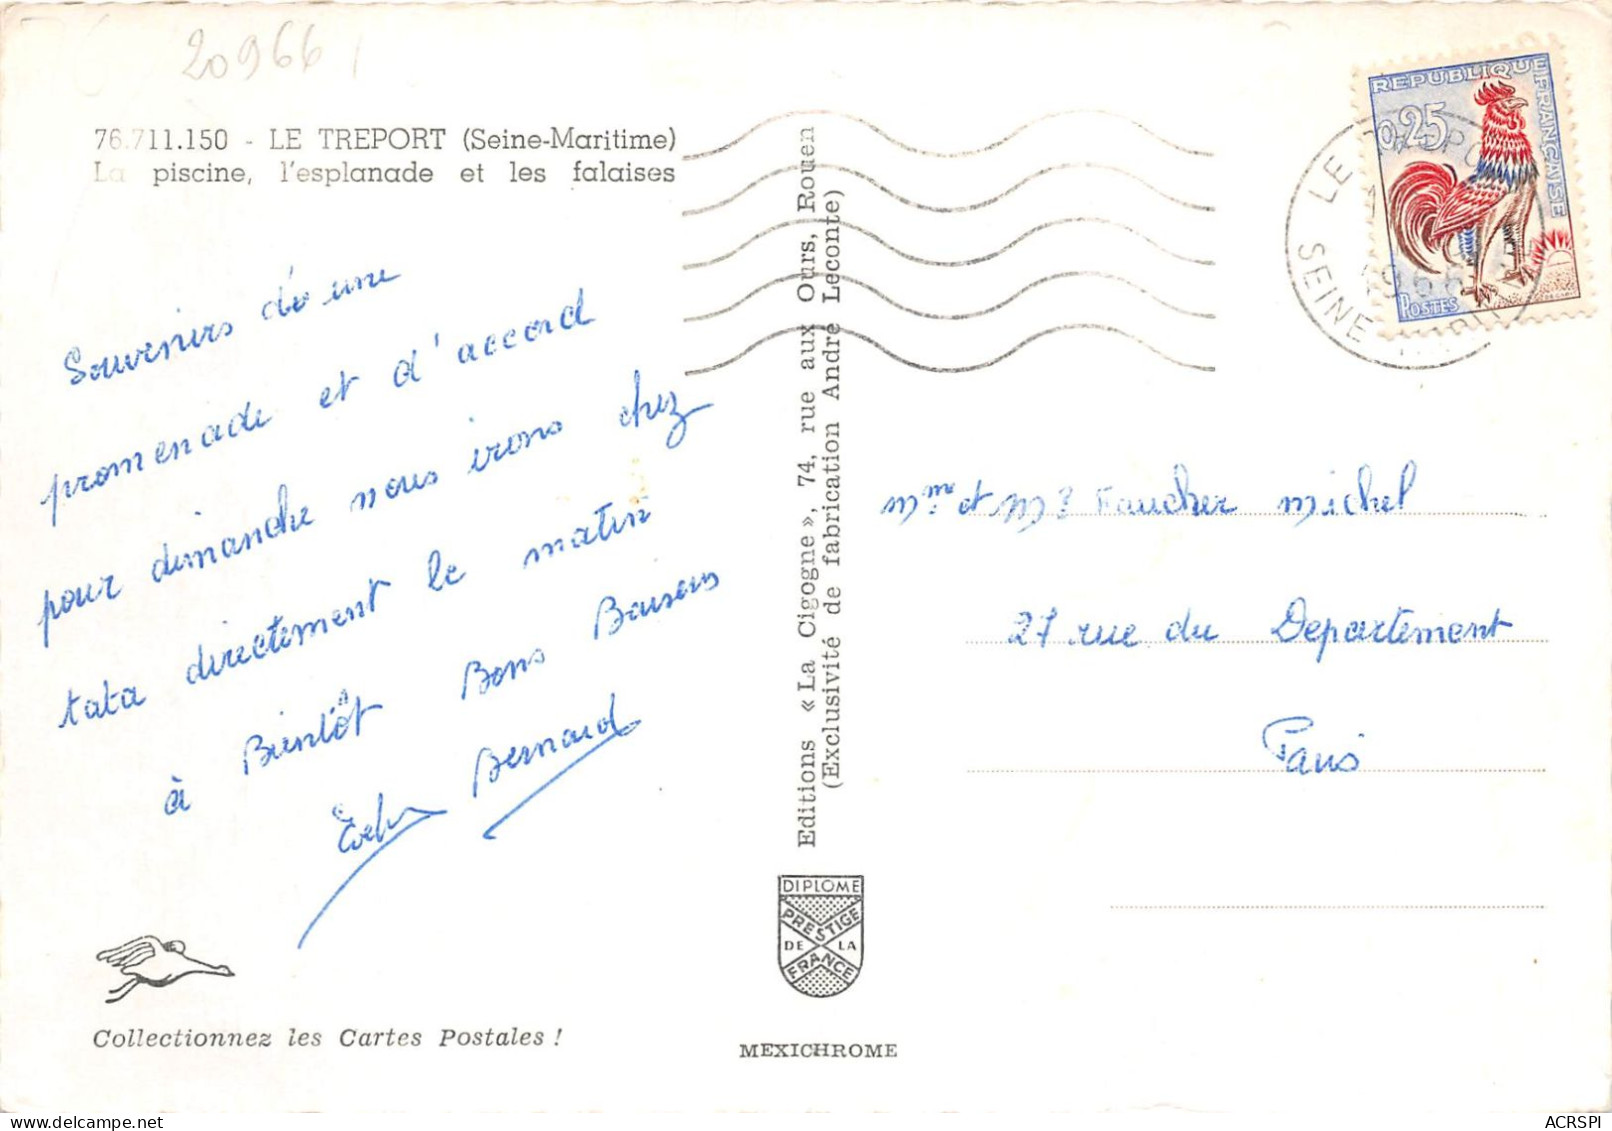 20966
76.711.150 - LE TREPORT (Seine-Maritime)
La piscine, l'esplanade et les falaises
Souvenirs de une
promenade et d'accord
pour dimanche nous irons chez
tata directement le matin
à Bientôt Bons Baisers
Bernard
Collectionnez les Cartes Postales !
Editions « La Cigogne », 74, rue aux Ours, Rouen
(Exclusivité de fabrication André Leconte)
DIPLOME
PRESTIGE
DE LA
FRANCE
MEXICHROME
REPUBLIQUE FRANÇAISE
0,25
POSTES
LE TREPORT
1966
SEINE MARITIME
Mme et Mr Faucher Michel
27 rue du Departement
Paris
ACRSPI